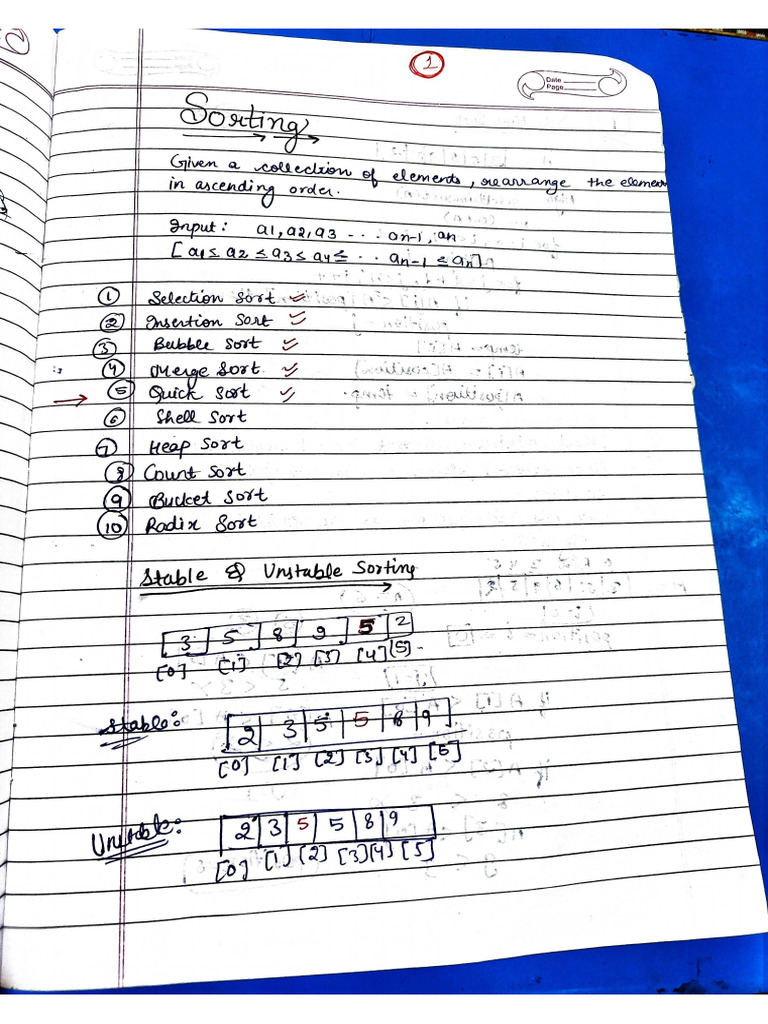 1
Date
Page
Sorting
Given a collection of elements, rearrange the elemen
in ascending order.
Input: a1, a2, a3 ... an-1, an
[a1 ≤ a2 ≤ a3 ≤ a4 ≤ .. an-1 ≤ an]
① Selection Sort ✓
② Insertion Sort ✓
③ Bubble Sort ✓
④ Merge Sort. ✓
→ ⑤ Quick Sort ✓
⑥ Shell Sort
⑦ Heap Sort
⑧ Count Sort
⑨ Bucket Sort
⑩ Radix Sort
Stable & Unstable Sorting
3 5 8 9 5 2
[0] [1] [2] [3] [4] [5]
Stable: 2 3 5 5 8 9
[0] [1] [2] [3] [4] [5]
Unstable: 2 3 5 5 8 9
[0] [1] [2] [3] [4] [5]